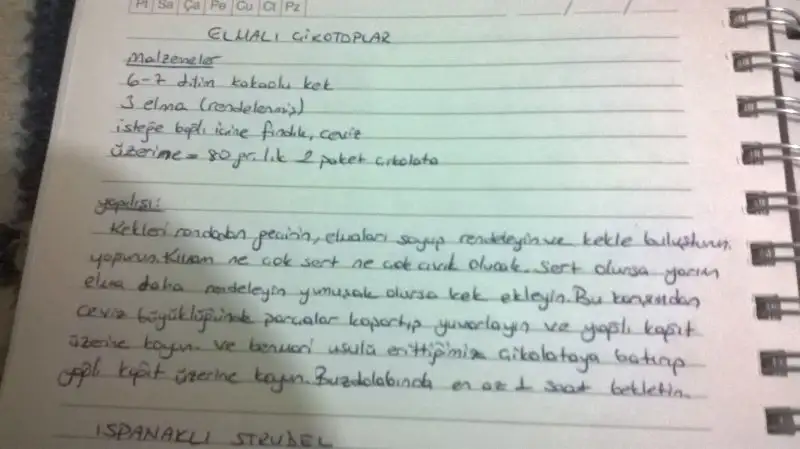 Pt Sa Ça Pe Cu Ct Pz
ELMALI ÇİKOTOPLAR
Malzemeler
6-7 dilim kakaolu kek
3 elma (rendelenmiş)
isteğe bağlı içine fındık, ceviz
üzerine = 80 gr.lık 2 paket çikolata
yapılışı:
Kekleri rondodan geçirin, elmaları soyup rendeleyin ve kekle buluşturun.
yoğurun. Kıvam ne çok sert ne çok cıvık olucak. Sert olursa yarım
elma daha rendeleyin yumuşak olursa kek ekleyin. Bu karışımdan
ceviz büyüklüğünde parçalar kopartıp yuvarlayın ve yağlı kağıt
üzerine koyun. ve benmari usulü erittiğimiz çikolataya batırıp
yağlı kağıt üzerine koyun. Buzdolabında en az 1 saat bekletin.
ISPANAKLI STRUDEL